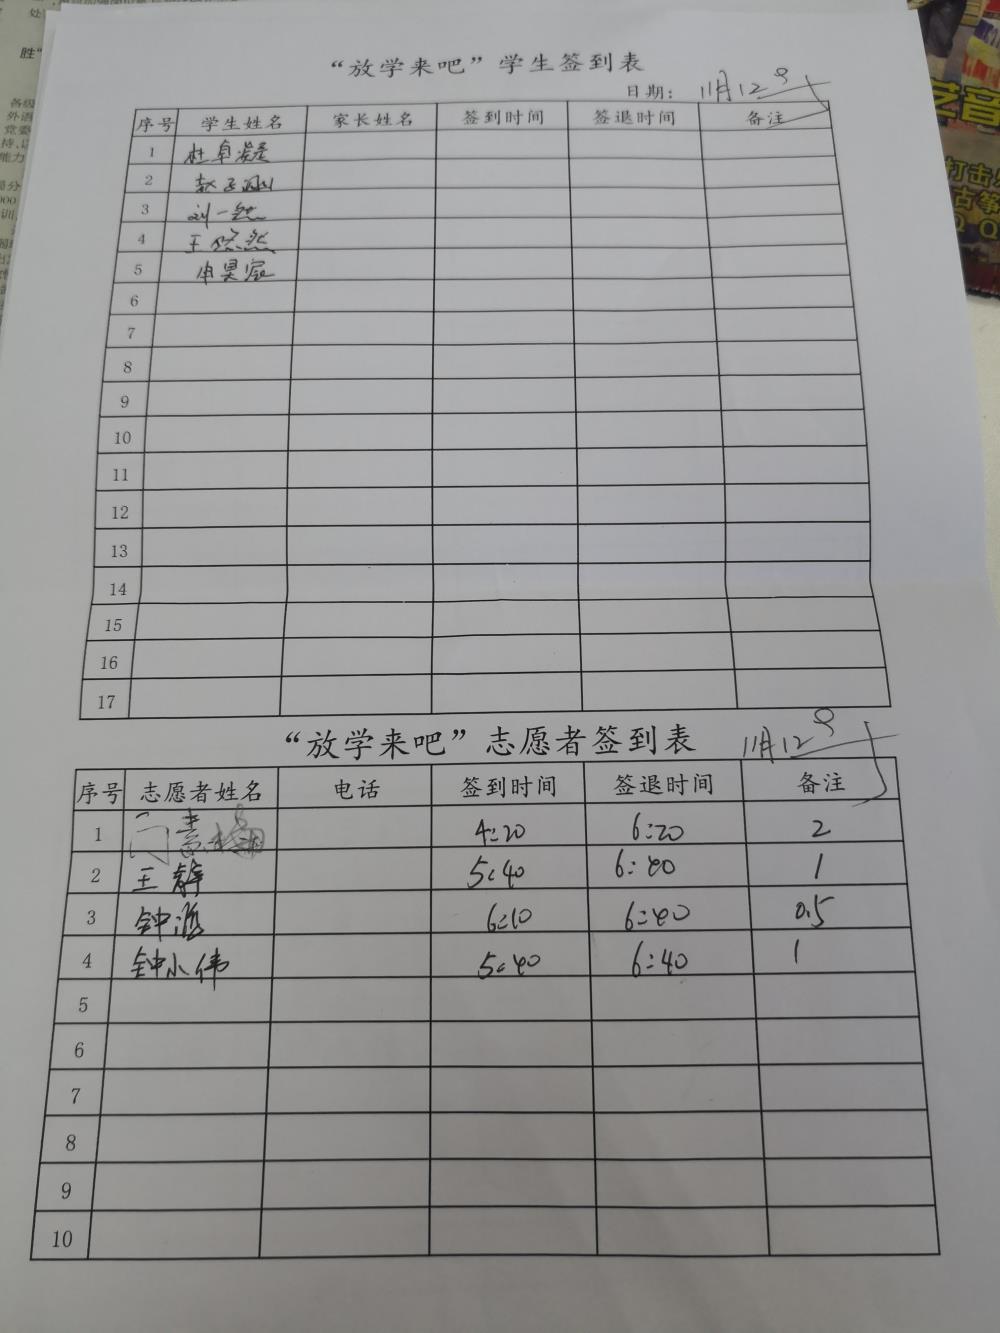 “放学来吧”学生签到表
日期： 11月12号
序号 学生姓名 家长姓名 签到时间 签退时间 备注
1 杜卓凝
2 赵子刚
3 刘一
4 王悠然
5 申昊宸
6
7
8
9
10
11
12
13
14
15
16
17
“放学来吧”志愿者签到表 11月12号
序号 志愿者姓名 电话 签到时间 签退时间 备注
1 门素梅 4:20 6:20 2
2 王静 5:40 6:40 1
3 钟 6:10 6:40 0.5
4 钟小伟 5:40 6:40 1
5
6
7
8
9
10
艺音
打击乐
古筝